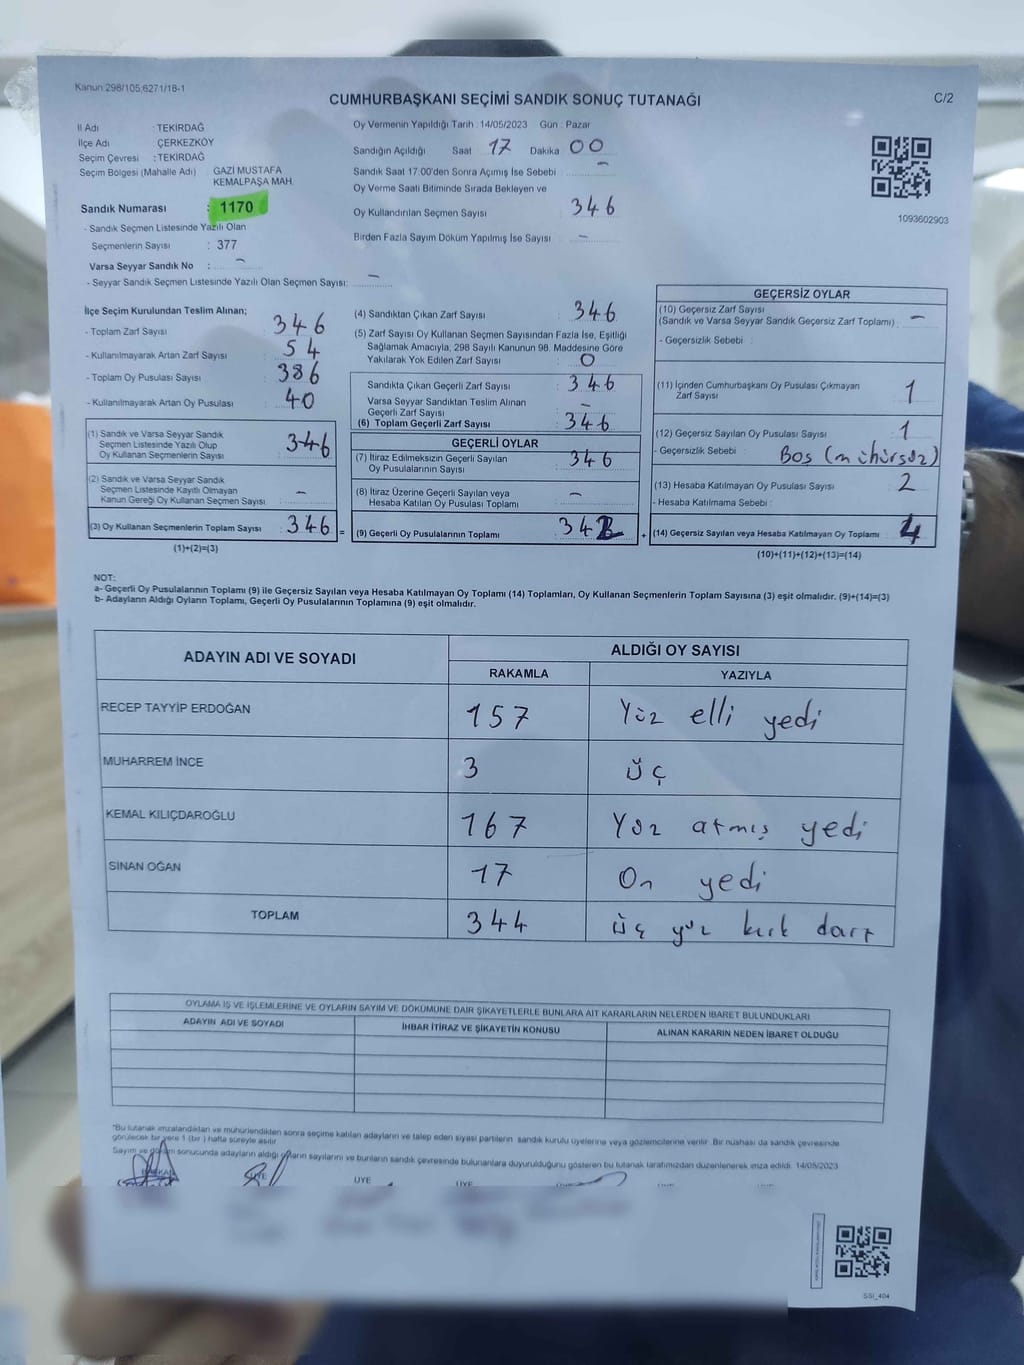 Kanun 298/105,6271/18-1
CUMHURBAŞKANI SEÇİMİ SANDIK SONUÇ TUTANAĞI
C/2
İl Adı : TEKİRDAĞ
İlçe Adı : ÇERKEZKÖY
Seçim Çevresi : TEKİRDAĞ
Seçim Bölgesi (Mahalle Adı) : GAZİ MUSTAFA
KEMALPAŞA MAH.
Sandık Numarası : 1170
- Sandık Seçmen Listesinde Yazılı Olan
Seçmenlerin Sayısı : 377
Varsa Seyyar Sandık No : -
- Seyyar Sandık Seçmen Listesinde Yazılı Olan Seçmen Sayısı: -
Oy Vermenin Yapıldığı Tarih : 14/05/2023 Gün : Pazar
Sandığın Açıldığı Saat 17 Dakika 00
Sandık Saat 17.00'den Sonra Açımış İse Sebebi : -
Oy Verme Saati Bitiminde Sırada Bekleyen ve
Oy Kullandırılan Seçmen Sayısı 346
Birden Fazla Sayım Döküm Yapılmış İse Sayısı : -
1093602903
İlçe Seçim Kurulundan Teslim Alınan;
- Toplam Zarf Sayısı : 346
- Kullanılmayarak Artan Zarf Sayısı : 54
- Toplam Oy Pusulası Sayısı : 386
- Kullanılmayarak Artan Oy Pusulası : 40
(1) Sandık ve Varsa Seyyar Sandık
Seçmen Listesinde Yazılı Olup
Oy Kullanan Seçmenlerin Sayısı : 346
(2) Sandık ve Varsa Seyyar Sandık
Seçmen Listesinde Kayıtlı Olmayan
Kanun Gereği Oy Kullanan Seçmen Sayısı : -
(3) Oy Kullanan Seçmenlerin Toplam Sayısı : 346 =
(1)+(2)=(3)
(4) Sandıktan Çıkan Zarf Sayısı : 346
(5) Zarf Sayısı Oy Kullanan Seçmen Sayısından Fazla İse, Eşitliği
Sağlamak Amacıyla, 298 Sayılı Kanunun 98. Maddesine Göre
Yakılarak Yok Edilen Zarf Sayısı : 0
Sandıkta Çıkan Geçerli Zarf Sayısı : 346
Varsa Seyyar Sandıktan Teslim Alınan
Geçerli Zarf Sayısı : -
(6) Toplam Geçerli Zarf Sayısı : 346
GEÇERLİ OYLAR
(7) İtiraz Edilmeksizin Geçerli Sayılan
Oy Pusulalarının Sayısı : 346
(8) İtiraz Üzerine Geçerli Sayılan veya
Hesaba Katılan Oy Pusulası Toplamı : -
(9) Geçerli Oy Pusulalarının Toplamı : 342 +
GEÇERSİZ OYLAR
(10) Geçersiz Zarf Sayısı
(Sandık ve Varsa Seyyar Sandık Geçersiz Zarf Toplamı) : -
- Geçersizlik Sebebi :
(11) İçinden Cumhurbaşkanı Oy Pusulası Çıkmayan
Zarf Sayısı : 1
(12) Geçersiz Sayılan Oy Pusulası Sayısı : 1
- Geçersizlik Sebebi : Boş (mühürsüz)
(13) Hesaba Katılmayan Oy Pusulası Sayısı : 2
- Hesaba Katılmama Sebebi :
(14) Geçersiz Sayılan veya Hesaba Katılmayan Oy Toplamı : 4
(10)+(11)+(12)+(13)=(14)
NOT:
a- Geçerli Oy Pusulalarının Toplamı (9) ile Geçersiz Sayılan veya Hesaba Katılmayan Oy Toplamı (14) Toplamları, Oy Kullanan Seçmenlerin Toplam Sayısına (3) eşit olmalıdır. (9)+(14)=(3)
b- Adayların Aldığı Oyların Toplamı, Geçerli Oy Pusulalarının Toplamına (9) eşit olmalıdır.
ADAYIN ADI VE SOYADI ALDIĞI OY SAYISI
RAKAMLA YAZIYLA
RECEP TAYYİP ERDOĞAN 157 Yüz elli yedi
MUHARREM İNCE 3 üç
KEMAL KILIÇDAROĞLU 167 Yüz atmış yedi
SİNAN OĞAN 17 On yedi
TOPLAM 344 üç yüz kırk dört
OYLAMA İŞ VE İŞLEMLERİNE VE OYLARIN SAYIM VE DÖKÜMÜNE DAİR ŞİKAYETLERLE BUNLARA AİT KARARLARIN NELERDEN İBARET BULUNDUKLARI
ADAYIN ADI VE SOYADI İHBAR İTİRAZ VE ŞİKAYETİN KONUSU ALINAN KARARIN NEDEN İBARET OLDUĞU
*Bu tutanak imzalandıktan ve mühürlendikten sonra seçime katılan adayların ve talep eden siyasi partilerin sandık kurulu üyelerine veya gözlemcilerine verilir. Bir nüshası da sandık çevresinde
görülecek bir yere 1 (bir) hafta süreyle asılır.
Sayım ve döküm sonucunda adayların aldığı oyların sayılarını ve bunların sandık çevresinde bulunanlara duyurulduğunu gösteren bu tutanak tarafımızdan düzenlenerek imza edildi. 14/05/2023
BAŞKAN ÜYE ÜYE ÜYE
SSI_404